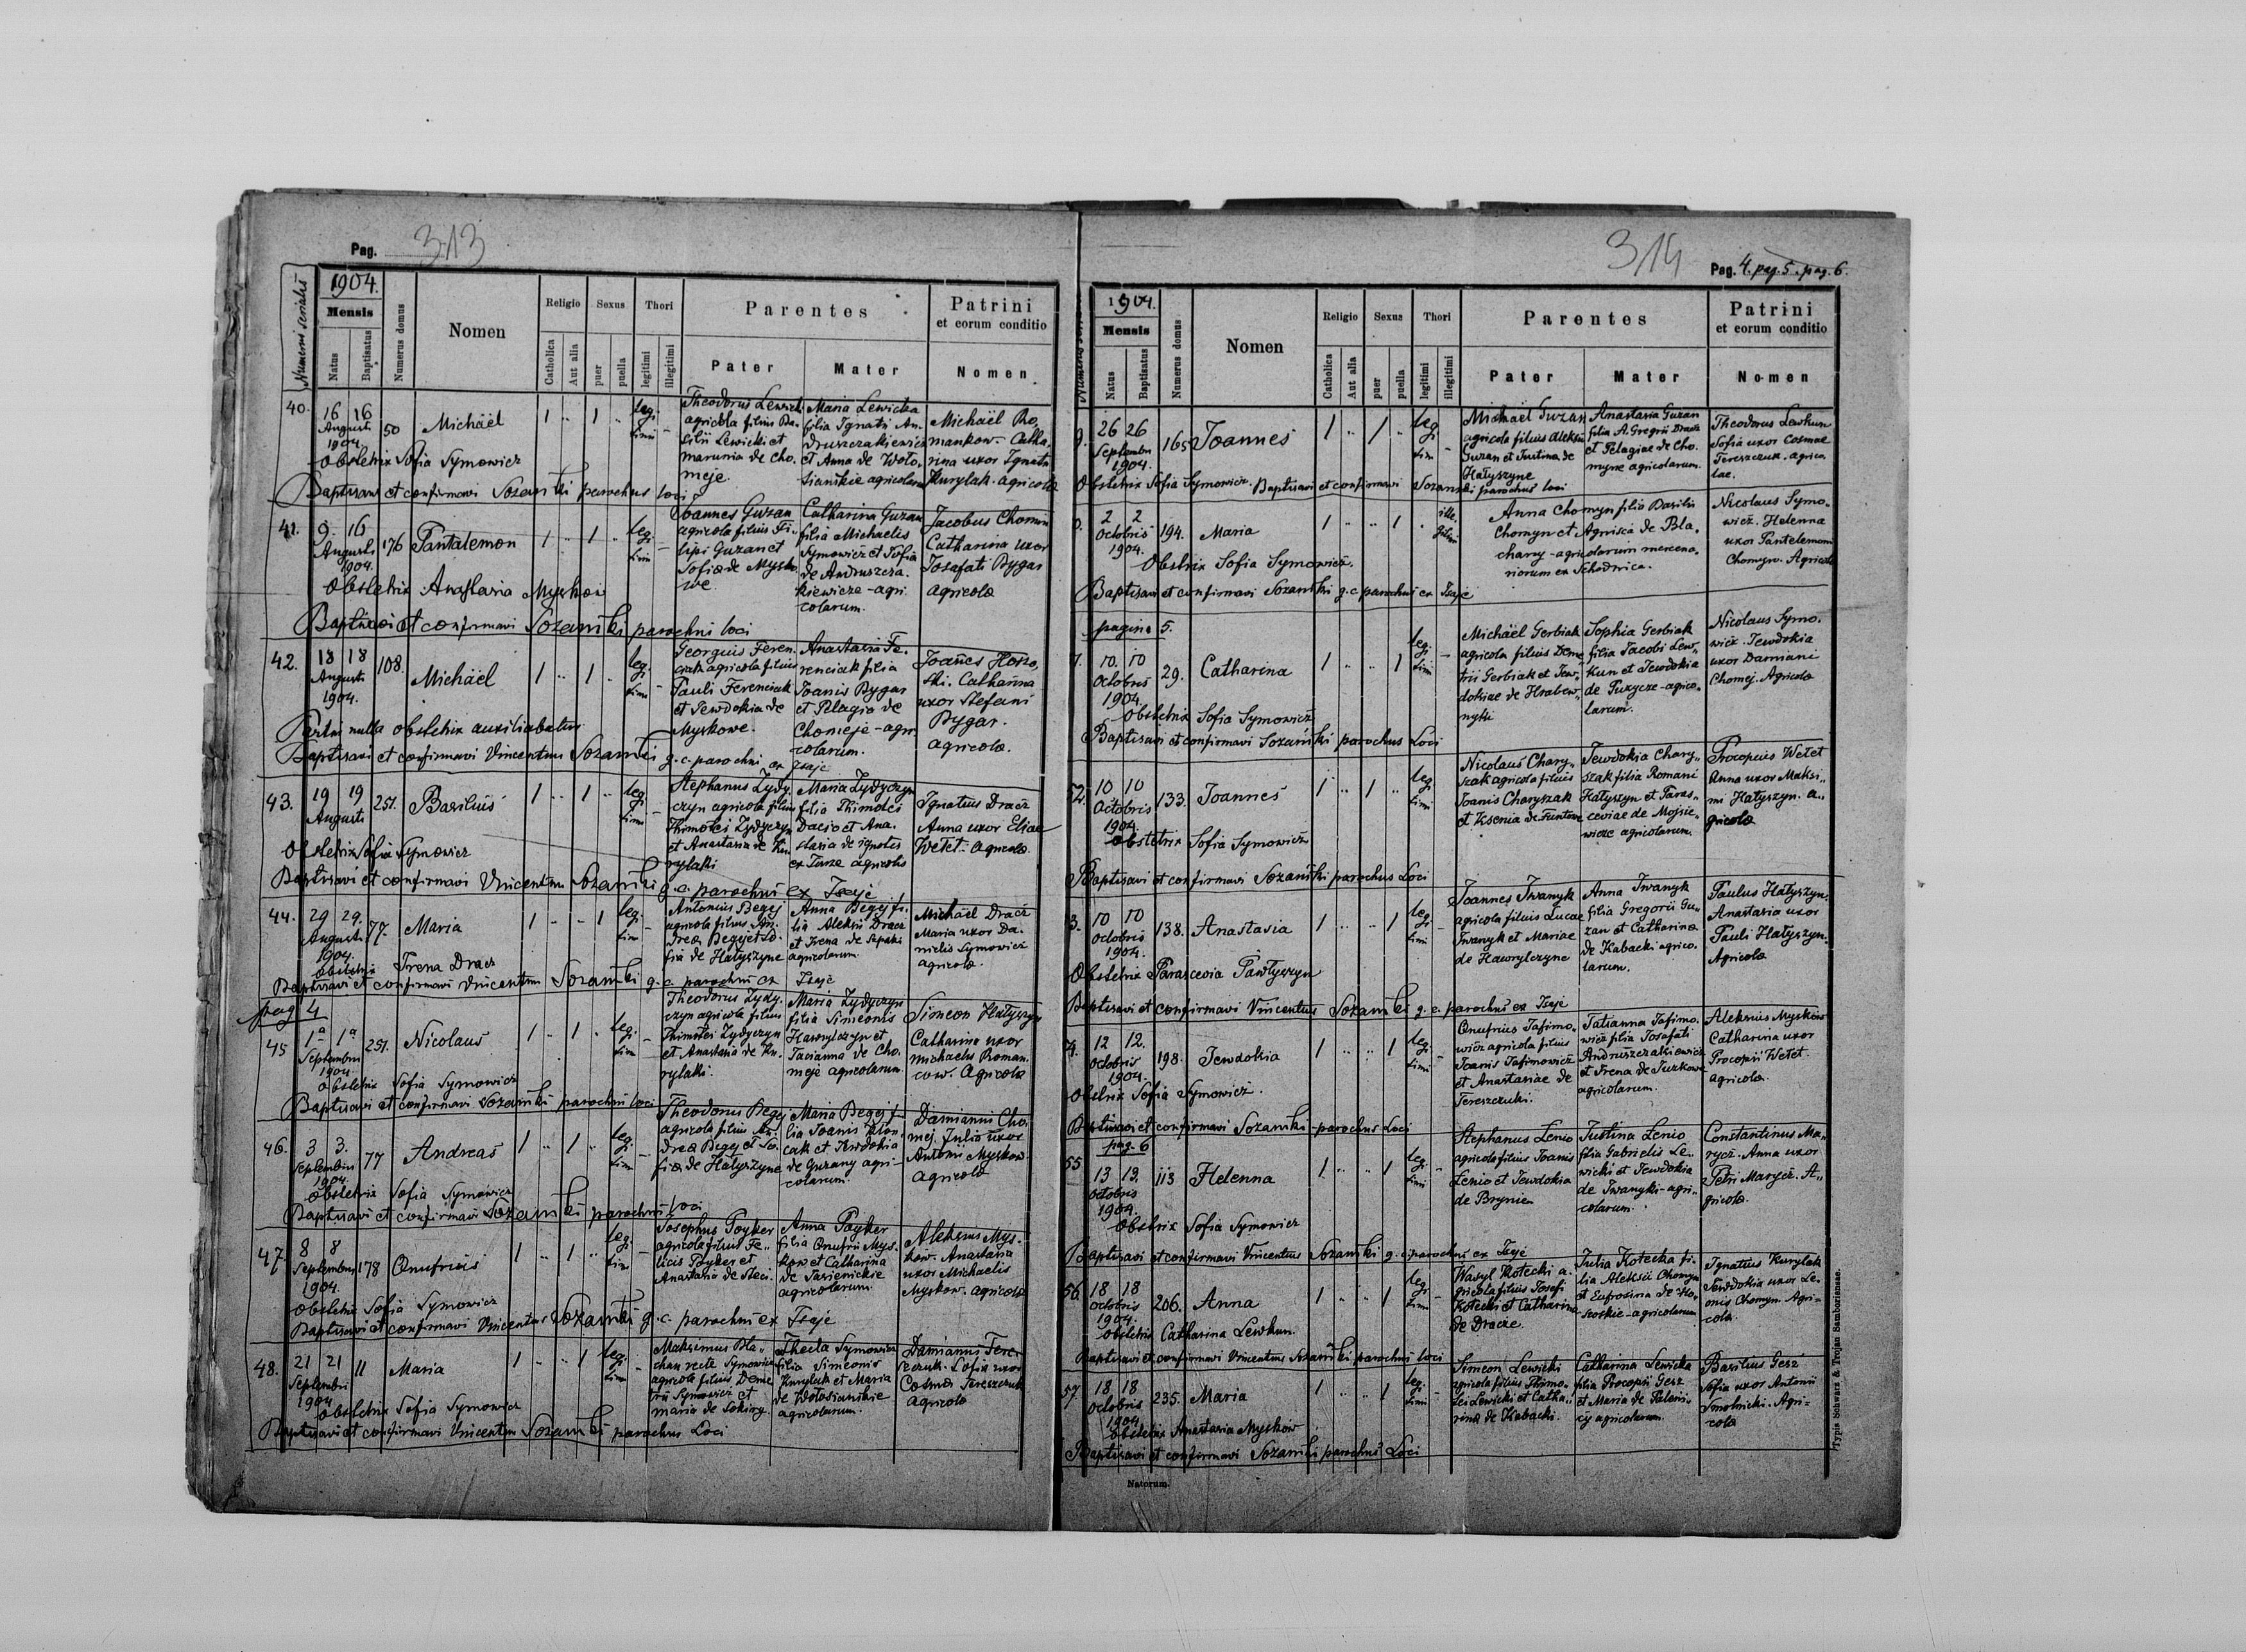 Pag. 313
Numerus serialis
1904.
Mensis
Natus
Baptisatus
Numerus domus
Nomen
Religio
Catholica
Aut alia
Sexus
puer
puella
Thori
legitimi
illegitimi
Parentes
Pater
Mater
Patrini
et eorum conditio
Nomen
40. 16 16 Augusti 1904. 50 Michäel 1 .. 1 .. legitimi –
Theodorus Lewicki
agricola filius Ba-
silii Lewicki et
marunia de Cho-
meje
Maria Lewicka
filia Ignatii An-
druszczakiewicz
et Anna de Woło-
sianskie agricolarum
Michaël Ro,
mankow. Catha,
rina uxor Ignatii
Kurylak. agricola
Obstetrix Sofia Symowicz
Baptisavi et confirmavi Sozański parochus loci
41. 9. 16 Augusti 1904. 176 Pantalemon 1 .. 1 .. legitimi –
Joannes Guzan
agricola filius Fi-
lipi Guzan et
Sofia de Mysko
we
Catharina Guzan
filia Michaelis
Symowicz et Sofia
de Andruszcza-
kiewicze - agri-
colarum.
Jacobus Chomin
Catharina uxor
Josafati Bygar
agricola
Obstetrix Anastasia Myskow
Baptisavi et confirmavi Sozański parochus loci
42. 18 18 Augusti 1904. 108. Michäel 1 .. 1 . legitimi –
Georguis Feren-
czak agricola filius
Pauli Ferenciak
et Jewdokia de
Myskowe.
Anastasia Fe-
renciak filia
Joanis Bygar
et Pelagia de
Chomeje - agri-
colarum.
Joañes Hoszo,
ski. Catharina
uxor Stefani
Bygar.
agricola.
Partui nulla obstetrix auxiliabatur
Baptisavi et confirmavi Vincentius Sozański g. c. parochus ex Isaje
43. 19 19 Augusti 251. Basilius 1 .. 1 .. legitimi –
Stephanus Zydy-
czyn agricola filius
Thimotei Zydyczyn
et Anastasia de Ku-
rylaki
Maria Zydyczyn
filia Thimotei
Dacio et Ana-
stasia de ignotis
ex Turze agricolis
Ignatius Dracz
Anna uxor Eliae
Wetet. - agricola
Obstetrix Sofia Symowicz
Baptisavi et confirmavi Vincentius Sozański g. c. parochus ex Isaje
44. 29 29. Augusti 1904. 77. Maria 1 .. – 1 legitimi –
Antonius Begej
agricola filius An-
drea Begej et So-
fia de Hałyszyne
Anna Begej fi-
lia Aleksii Dracz
et Irena de Sepaki
agricolarum
Michäel Dracz
Maria uxor Da-
nielis Symowicz
agricola.
Obstetrix Irena Dracz
Baptisavi et confirmavi Vincentius Sozański g. c. parochus ex Isaje
pag 4
45 1ª 1ª Septembris 1904. 251. Nicolaus 1 .. 1 . legitimi –
Theodorus Zydy-
czyn agricola filius
Thimotei Zydyczyn
et Anastasia de Ku-
rylaki.
Maria Zydyczyn
filia Simeonis
Hawrylczyn et
Tacianna de Cho-
meje agricolarum
Simeon Hałyszyn
Catharina uxor
Michaelis Roman-
cow. Agricola
Obstetrix Sofia Symowicz
Baptisavi et confirmavi Sozański parochus loci
46. 3 3. Septembris 1904. 77 Andreas 1 .. 1 .. legitimi –
Theodorus Begej
agricola filius An-
drea Begej et So-
fia de Hałyszyne
Maria Begej fi-
lia Joanis Klon-
cak et Jewdokia
de Guzany agri-
colarum.
Damianus Cho,
mej. Julia uxor
Antonii Myskow
agricola
Obstetrix Sofia Symowicz
Baptisavi et confirmavi Sozański parochus loci
47. 8 8 Septembris 1904. 178 Onufrius 1 .. 1 .. legitimi –
Josephus Poyker
agricola filius Fe-
licis Poyker et
Anastasia de Steci.
Anna Poyker
filia Onufrii Mys-
kow et Catharina
de Jasienickie
agricolarum
Aleksius Mys-
kow. Anastasia
uxor Michaelis
Myskow. agricola
Obstetrix Sofia Symowicz
Baptisavi et confirmavi Vincentius Sozański g. c. parochus ex Isaje
48. 21 21 Septembri 1904 11 Maria 1 .. .. 1 legitimi –
Maksimus Bla-
chan recte Symowicz
agricola filius Deme
trii Symowicz et
maria de Sokirz.
Thecla Symowicz
filia Simeonis
Kurylak et Maria
de Wołosianskie
agricolarum.
Damianus Teres-
zczuk. Sofia uxor
Cosma Tereszczuk
agricola
Obstetrix Sofia Symowicz
Baptisavi et confirmavi Vincentius Sozański parochus Loci
314
Pag. 4. pag. 5. pag. 6.
1904.
Mensis
Natus
Baptisatus
Numerus domus
Nomen
Religio
Catholica
Aut alia
Sexus
puer
puella
Thori
legitimi
illegitimi
Parentes
Pater
Mater
Patrini
et eorum conditio
Nomen
9. 26 26 Septembri 1904. 165 Joannes 1 .. 1 .. legitimi –
Michael Guzan
agricola filius Aleksii
Guzan et Justina de
Hałyszyne
Anastasia Guzan
filia A. Gregrii Dracz
et Pelagiae de Cho-
myne agricolarum.
Theodorus Lewkun
Sofia uxor Cosmae
Tereszczuk. agrico
lae.
Obstetrix Sofia Symowicz. Baptisavi et confirmavi Sozanski parochus loci
0. 2 2 Octobris 1904. 194. Maria 1 .. .. 1 . illegitimi
Anna Chomyn filia Basilii
Chomyn et Agnisca de Bla-
chany - agricolarum mercena-
riorum ex Schodnica.
Nicolaus Symo-
wicz. Helenna
uxor Pantelemoni
Chomyn. Agricola
Obstrix Sofia Symowicz.
Baptisavi et confirmavi Sozański g. c. parochus ex Isaje
pagina 5.
1. 10. 10 Octobris 1904 29. Catharina 1 .. .. 1 legitimi –
Michäel Gerbiak
agricola filius Deme
trii Gerbiak et Jew-
dokiae de Hrabew-
nyki
Sophia Gerbiak
filia Jacobi Lew-
kun et Jewdokia
de Puzycze - agrico-
larum.
Nicolaus Symo-
wicz. Jewdokia
uxor Damiani
Chomej. Agricola
Obstetrix Sofia Symowicz
Baptisavi et confirmavi Sozański parochus Loci
52. 10 10 Octobris 1904 133. Joannes 1 .. 1 .. legitimi
Nicolaus Chary-
szak agricola filius
Joanis Charyszak
et Ksenia de Funtowe
Jewdokia Chary-
szak filia Romani
Hałyszyn et Paras-
ceviae de Mojsie-
wicze agricolarum.
Procopius Wetet
Anna uxor Maksi-
mi Hałyszyn. a-
gricola
Obstetrix Sofia Symowicz
Baptisavi et confirmavi Sozański parochus Loci
3. 10 10 Octobris 1904. 138. Anastasia 1 .. .. 1 legitimi –
Joannes Iwanyk
agricola filius Lucae
Iwanyk et Mariae
de Hawrylczyne
Anna Iwanyk
filia Gregorii Gu-
zan et Catharina
de Kabacki agrico-
larum.
Paulus Hałyszyn.
Anastasia uxor
Pauli Hałyszyn.
Agricola
Obstetrix Parascevia Pawłyszyn
Baptisavi et confirmavi Vincentius Sozański g. c. parochus ex Isaje
4. 12 12. Octobris 1904. 198. Jewdokia 1 .. .. 1 legitimi –
Onufrius Jafimo-
wicz agricola filius
Joanis Jafimowicz
et Anastasiae de
Tereszczuki.
Tatianna Jafimo-
wicz filia Josafati
Andruszczakiewicz
et Irena de Juzkowe
agricolarum.
Aleksius Myskow
Catharina uxor
Procopii Wetet.
agricola.
Obstrix Sofia Symowicz.
Baptisavi et confirmavi Sozański - parochus Loci
pag. 6
55 13 13. Octobris 1904. 113 Helenna 1 .. .. 1 legitimi –
Stephanus Lenio
agricola filius Joanis
Lenio et Jewdokia
de Brynien
Justina Lenio
filia Gabrielis Le-
wicki et Jewdokia
de Iwanyki - agri-
colarum.
Constantinus Ma-
rycz. Anna uxor
Petri Marycz. A-
gricola.
Obstrix Sofia Symowicz
Baptisavi et confirmavi Vincentius Sozanski g. c. parochus ex Isaje
56. 18 18 Octobris 1904. 206. Anna 1 .. .. 1 legitimi –
Wasyl Kotecki a-
gricola filius Josefi
Kotecki et Catharina
de Dracze
Julia Kotecka fi-
lia Aleksii Chomyn
et Eufrosina de Ho-
szoskie - agricolarum
Ignatius Kurylak
Jewdokia uxor Le-
onis Chomyn. Agri-
cola.
Obstetrix Catharina Lewkun.
Baptisavi et confirmavi Vincentius Sozański parochus loci
57. 18 18 Octobris 1904. 235. Maria 1 .. .. 1 legitimi –
Simeon Lewicki
agricola filius Thimo-
tei Lewicki et Catha-
rina de Kabacki.
Catharina Lewicka
filia Procopii Gesz
et Maria de Paleni-
cy agricolarum.
Basilius Gesz
Sofia uxor Antonii
Smolnicki. Agri-
cola
Obstetrix Anastasia Myskow
Baptisavi et confirmavi Sozański parochus Loci
Natorum.
Typis Schwarz & Trojan Samboriensae.